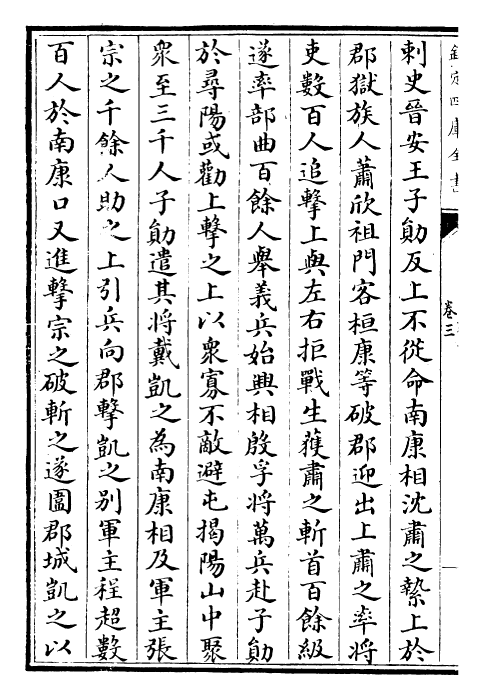 欽定四庫全書
卷三
刺史晉安王子勛反上不從命南康相沈肅之縶上於
郡獄族人蕭欣祖門客桓康等破郡迎出上肅之率將
吏數百人追擊上與左右拒戰生獲肅之斬首百餘級
遂率部曲百餘人舉義兵始興相殷孚將萬兵赴子勛
於尋陽或勸上擊之上以衆寡不敵避屯揭陽山中聚
衆至三千人子勛遣其將戴凱之為南康相及軍主張
宗之千餘人助之上引兵向郡擊凱之別軍主程超數
百人於南康口又進擊宗之破斬之遂圍郡城凱之以